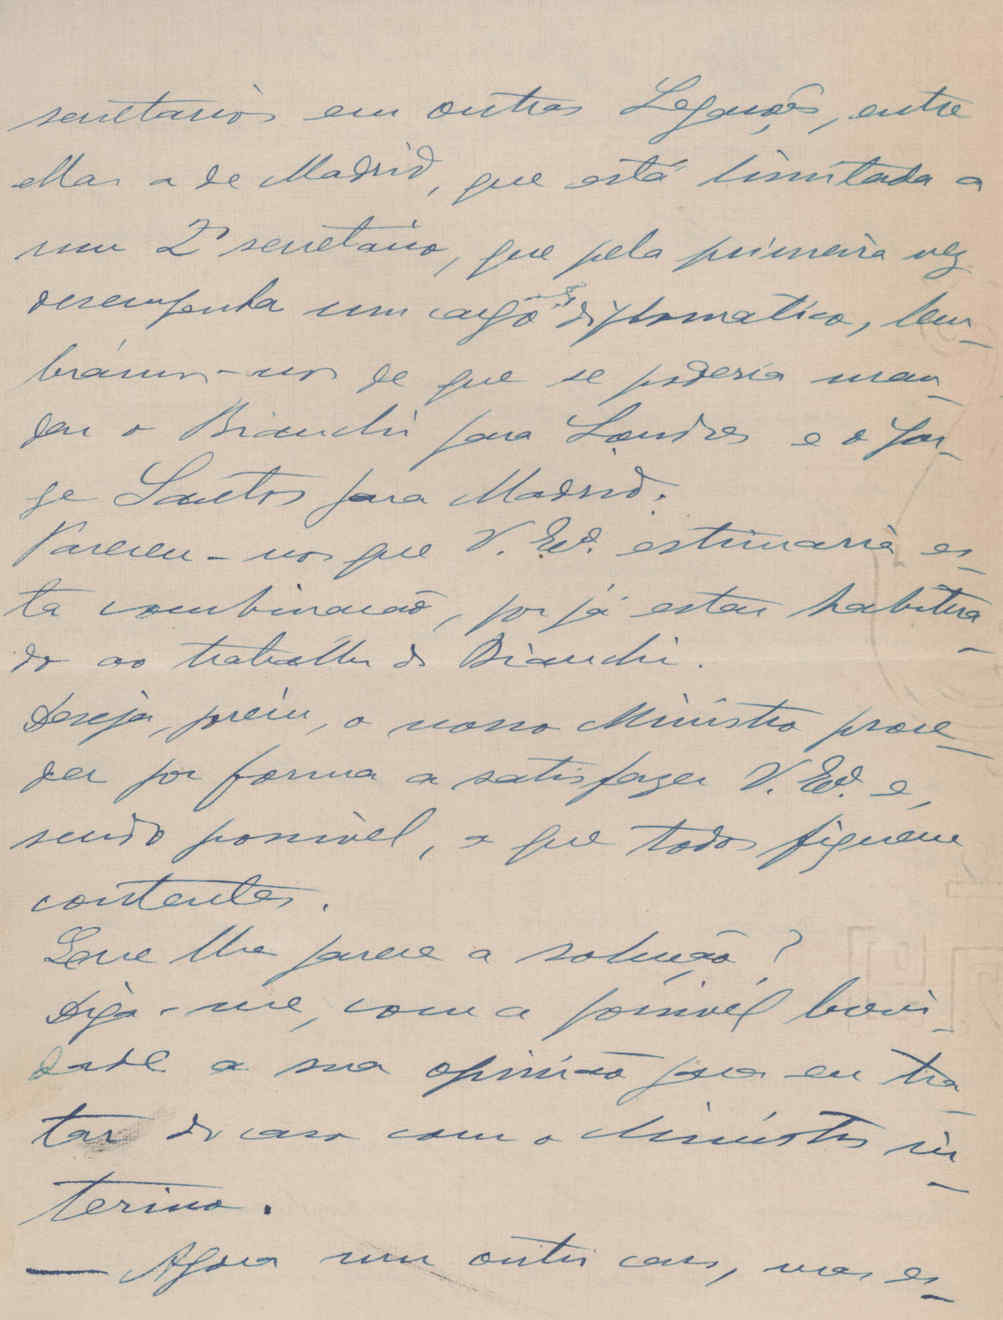 secretarios em outras Legações, entre
ellas a de Madrid, que está limitada a
um 2º secretario, que pela primeira vez
desempenha um cargo diplomatico, lem-
brámo-nos de que se poderia man-
dar o Bianchi para Londres e o Jor-
ge Santos para Madrid.
Pareceu-nos que V. Exª. estimaria es-
ta combinacão, por já estar habitua-
do ao trabalho do Bianchi.
Deseja, porém, o nosso Ministro proce-
der por forma a satisfazer V. Exª. e,
sendo possivel, a que todos fiquem
contentes.
Que lhe parece a solução?
Diga-me, com a possivel brevi-
dade a sua opinião para eu tra-
tar do caso com o Ministro in-
terino.
— Agora um outro caso, mas es-